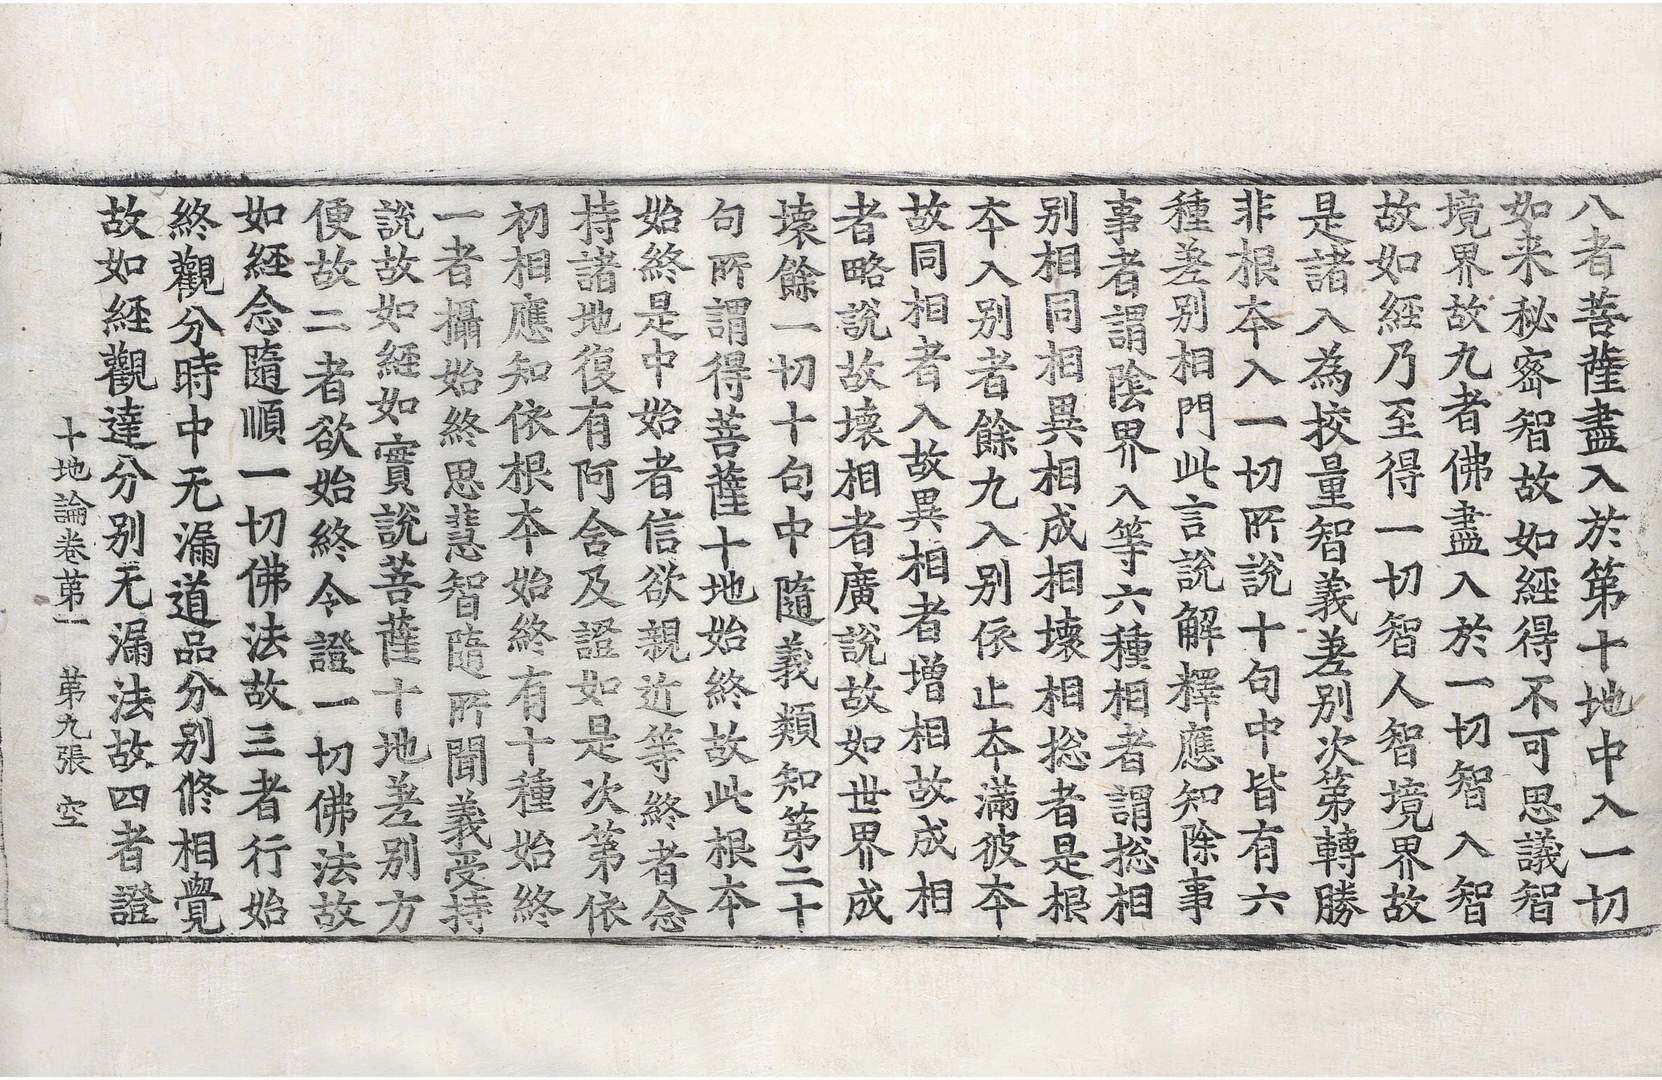 八者菩薩盡入於第十地中入一切
如来秘密智故如經得不可思議智
境界故九者佛盡入於一切智入智
故如經乃至得一切智人智境界故
是諸入為挍量智義差别次第轉勝
非根本入一切所說十句中皆有六
種差别相門此言說解釋應知除事
事者謂陰界入等六種相者謂揔相
别相同相異相成相壊相揔者是根
本入别者餘九入别依止本滿彼本
故同相者入故異相者增相故成相
者略說故壊相者廣說故如世界成
壊餘一切十句中隨義類知第二十
句所謂得菩薩十地始終故此根本
始終是中始者信欲親近等終者念
持諸地復有阿含及證如是次第依
初相應知依根本始終有十種始終
一者攝始終思慧智隨所聞義受持
說故如經如實說菩薩十地差别方
便故二者欲始終令證一切佛法故
如經念隨順一切佛法故三者行始
終觀分時中无漏道品分别修相覺
故如經觀達分别无漏法故四者證
十地論卷苐一　苐九張　空